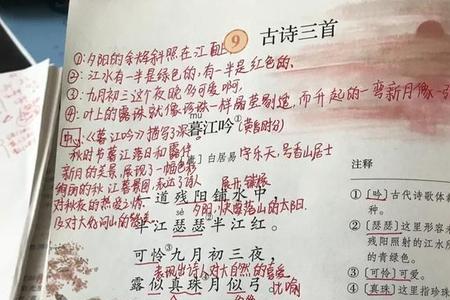 9 古诗三首
①:夕阳的余辉斜照在江面
②:江水有一半是绿色的,有一半是红色的.
③:九月初三这个夜晚多可爱啊,
④:叶上的露珠就像珍珠一样晶莹剔透,而升起的一弯新月像一
mù
暮江吟① (黄昏时分)
中心《暮江吟》描写了深
秋时节暮江落日和露珠
白居易 字乐天,号香山居士
新月的美景,展现了一幅色彩
绚丽的秋江暮景图,表达了诗人
对秋夜的热爱之情.
注释
一道残阳铺水中
夕阳,快要落山的太阳.
sè
半江瑟瑟半江红。
可怜③九月初三夜,
表现出诗人对大自然的喜爱
露似真珠月似弓
比喻
①〔吟〕古代诗歌体
种。
②〔瑟瑟〕这里形容
残阳照射的江水所
的青绿色。
③〔可怜〕可爱。
④〔真珠〕这里指珍珠